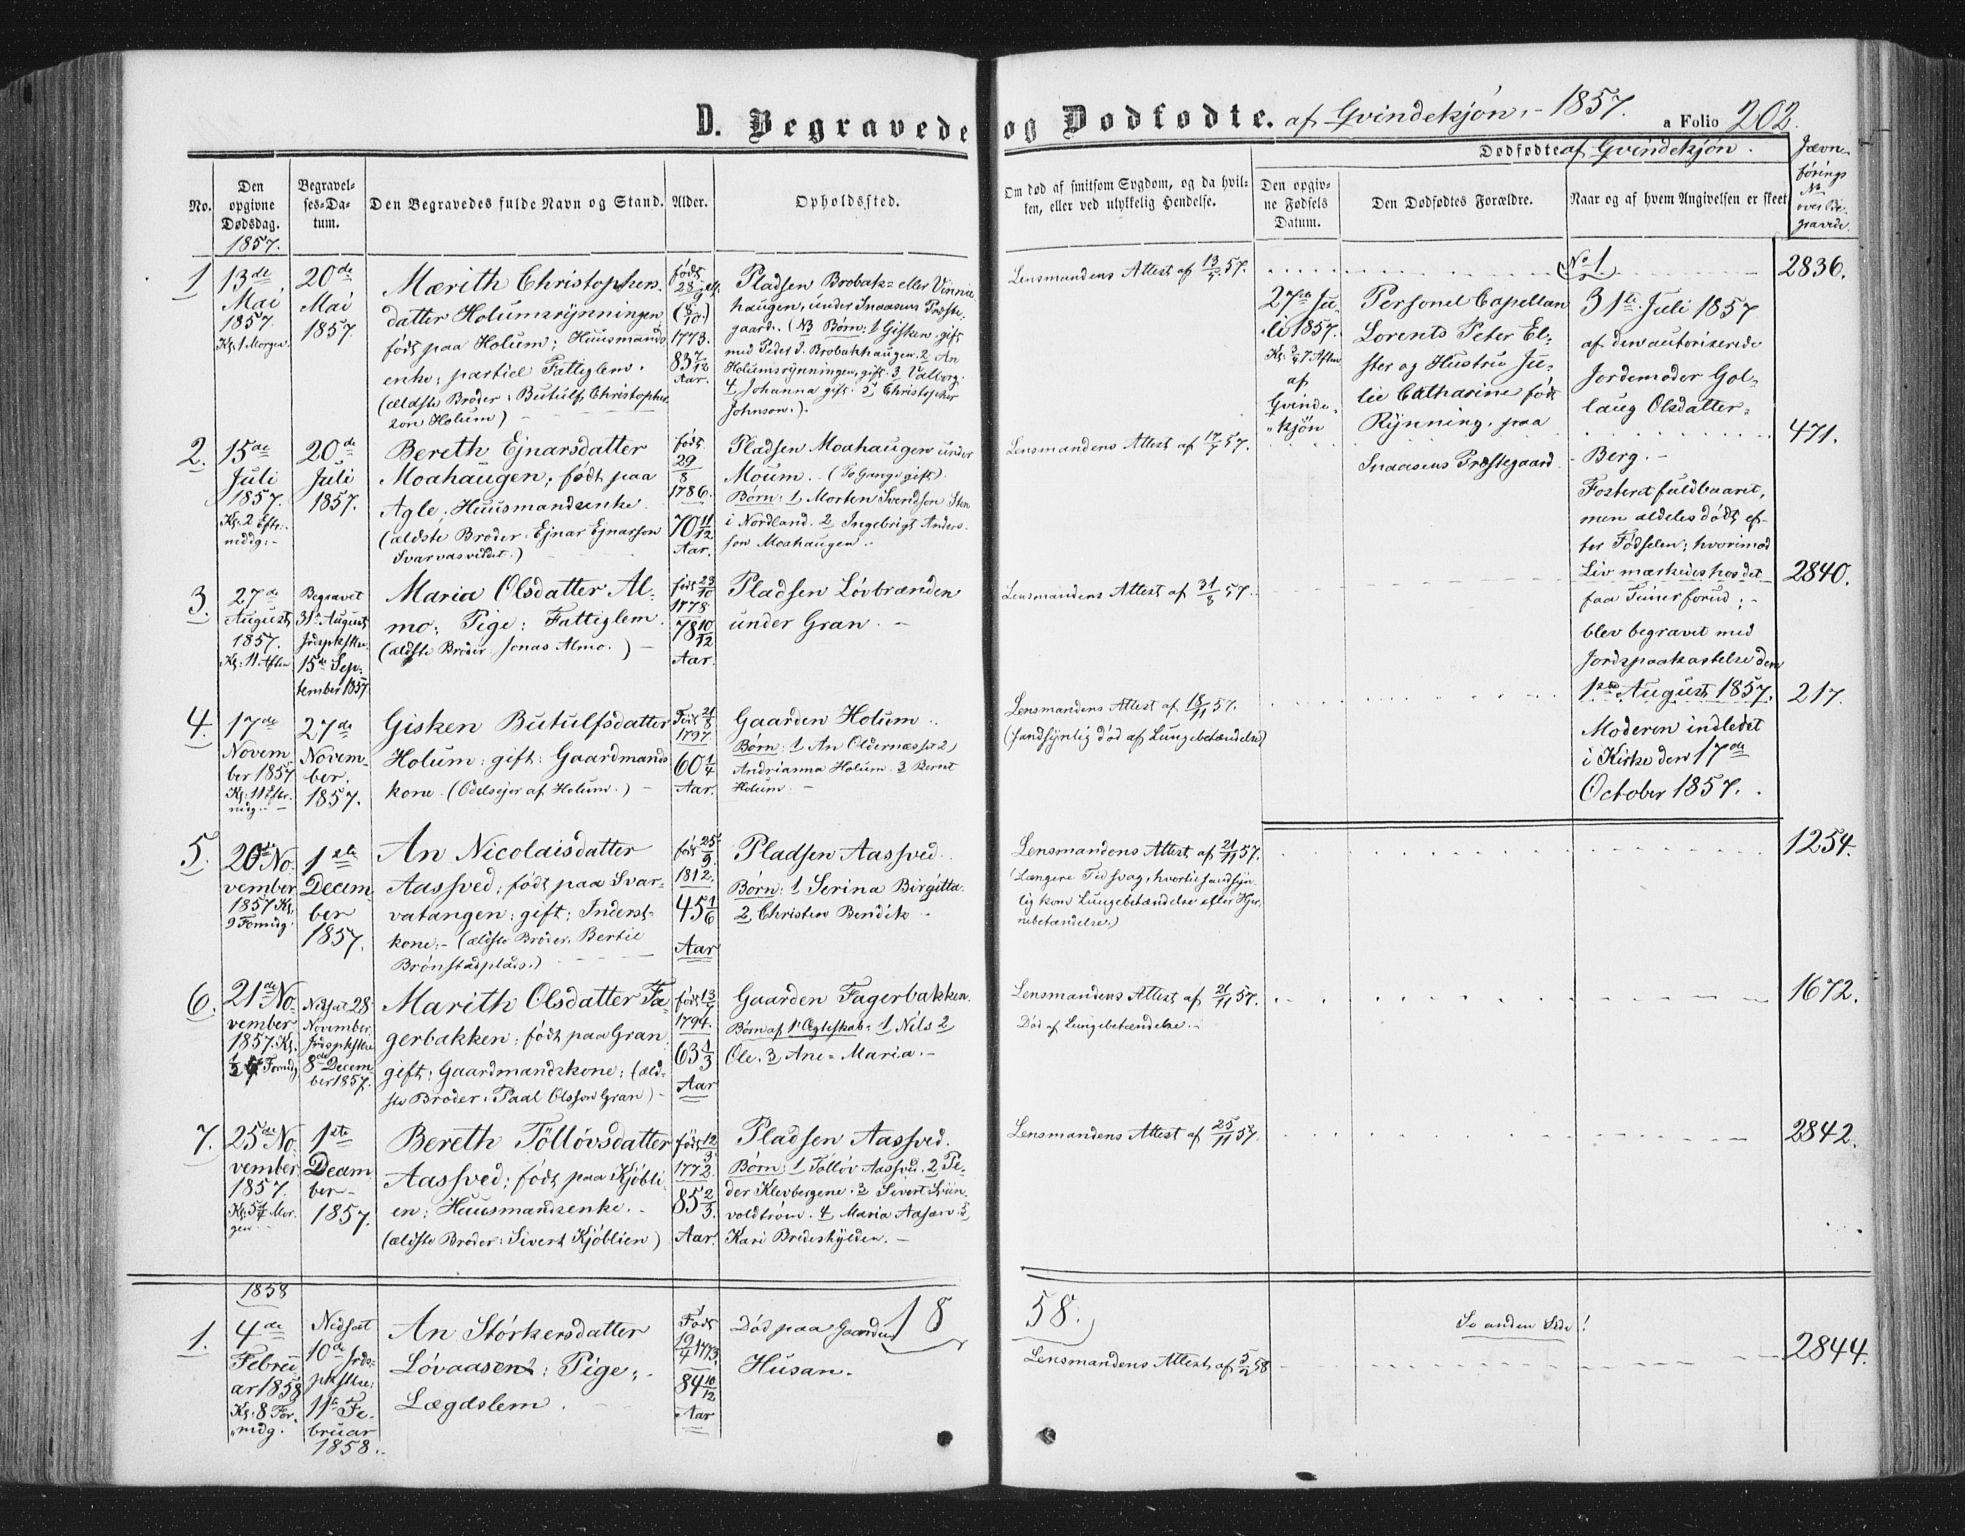 D. Begravede og Dødfødte. af Qvindekjøn. - 1857. a Folio 202.
Dødfødte af Qvindekjøn.
Jævnførings No over Begravede.
No.
Den opgivne Dødsdag.
Begravelses-Datum.
Den Begravedes fulde Navn og Stand.
Alder.
Opholdssted.
Om død af smitsom Sygdom, og da hvilken, eller ved ulykkelig Hendelse.
Den opgivne Fødsels Datum.
Den Dødfødtes Forældre.
Naar og af hvem Angivelsen er skeet
1857.
1
13de
Mai
1857.
Kl. 1 Morgen.
20de
Mai
1857.
Mærith Christophers-
datter Holumsrynningen
født paa Holum; Huusmands
enke; partiel Fattiglem.
(ældste Broder: Butulf Christopher-
son Holum)
født
1773.
83 7/12
Aar.
Pladsen Brobak- eller Vinnie
haugen, under Snaasens Præste-
gaard. (N3 Børn: 1 Gisken gift
med Peder J. Brobakhaugen. 2 An
Holumsrynningen, gift. 3 Valborg.
4 Johanna gift. 5 Christopher
Johnson.)
Lensmandens Attest af 13/5 57.
No 1.
2836.
27de Ju-
li 1857.
Kl. 3/4 7 Aften
af
Qvinde-
kjøn
Personel Capellan
Lorents Peter El-
ster og Hustru Ju-
lie Catharine født
Rynning, paa
Snaasens Præstegaard
31te Juli 1857
af den autoriserede
Jordemoder Gol-
laug Olsdatter
Berg. -
Fosteret fuldbaaret,
men aldeles dødt ef-
ter Fødselen; hvorimod
Liv mærkedes hos det
faa Timer forud; -
blev begravet med
Jordspaakastelse den
1ste August 1857.
Moderen indledet
i Kirke den 17de
October 1857.
2.
15de
Juli
1857.
Kl. 2 Efter-
middg. -
20de
Juli
1857.
Bereth Ejnarsdatter
Moahaugen; født paa
Agle; Huusmandsenke.
(ældste Broder: Ejnar Ejnarson
Svarvasviddet.)
født
29/8
1786.
70 11/12
Aar.
Pladsen Moahaugen under
Moum. - (To Gange gift)
Børn: 1 Morten Svendson Sten
i Nordland. 2 Ingebrigt Anders-
son Moahaugen.
Lensmandens Attest af 17/7 57.
471.
3.
27de
August
1857.
Kl. 11 Aften
Begravet
31te August
Jrdspkstlse
15de Sep-
tember 1857
Maria Olsdatter Al-
mo; Pige; Fattiglem.
(ældste Broder: Jonas Almo.) -
født 23/10
1778
78 10/12
Aar.
Pladsen Løvbrænden
under Gran. -
Lensmandens Attest af 31/8 57.
2840.
4.
17de
Novem-
ber 1857
Kl. 11 Efter-
midg. -
27de
Novem-
ber.
1857.
Gisken Butulfsdatter
Holum; gift; Gaardmands
kone. (Odelsejer af Holum.) -
Født 21/8
1797
60 1/4
Aar.
Gaarden Holum.
Børn: 1 An Oldernæsset 2
Andrianna Holum. 3 Bernt
Holum -
Lensmandens Attest af 18/11 57.
(sandsynlig død af Lungebetændelse)
217.
5.
20de No-
vember
1857 Kl.
9 Formidg.
1ste
Decem-
ber
1857.
An Nicolaisdatter
Aassved; født paa Svar-
vatangen; gift; Inderst-
kone; - (ældste Broder: Bertil
Brønstadplads.)
født 25/9
1812.
45 1/6
Aar
Pladsen Aassved.
Børn: 1 Serina Birgitta.
2 Christen Bendik.
Lensmandens Attest af 21/11 57.
(Længere Tid svag, hvortil sandsyn-
lig kom Lungebetændelse efter Hjer-
nebetændelse.)
1254.
6.
21de No-
vember
1857. Kl.
Formidg
Nedsat 28
November
Jrdspkstlse
8de Decem-
ber 1857.
Marith Olsdatter Fa-
gerbakken; født paa Gran
gift; Gaardmandskone; (æld-
ste Broder: Paal Olsson Gran) -
født 13/7
1794.
63 1/3
Aar
Gaarden Fagerbakken.
Børn af 1ste Ægteskab: 1 Nils 2
Ole. 3 Ane-Maria. -
Lensmandens Attest af 21/11 57.
Død af Lungebetændelse. -
1672.
7.
25de No-
vember
1857.
Kl. 5 1/4 Mor-
gen
1ste
Decem-
ber
1857.
Bereth Tølløvsdatter
Aassved; født paa Kjøbli-
en; Huusmandsenke. -
(ældste Broder: Sivert Kjøblien)
født 12/3
1772.
85 2/3.
Aar.
Pladsen Aassved.
Børn: 1 Tølløv Aassved. 2 Pe-
der Klevbergene. 3 Sivert
voldtrøen. 4 Maria Aasæn. 5
Kari Bredeshylden. -
Lensmandens Attest af 25/11 57.
2842.
1858
1858.
Se anden Side!
1.
4de
Febru-
ar 1858
Kl. 8 For-
midg.
Nedsat
10de Jrds-
pkstlse;
11te Fe-
bruar
1858.
An Størkersdatter
Løvaasen; Pige;
Lægdslem.
Født
19/4 1773.
84 10/12
Aar
Død paa Gaarden
Husan.
Lensmandens Attest af 5/2 58
2844.